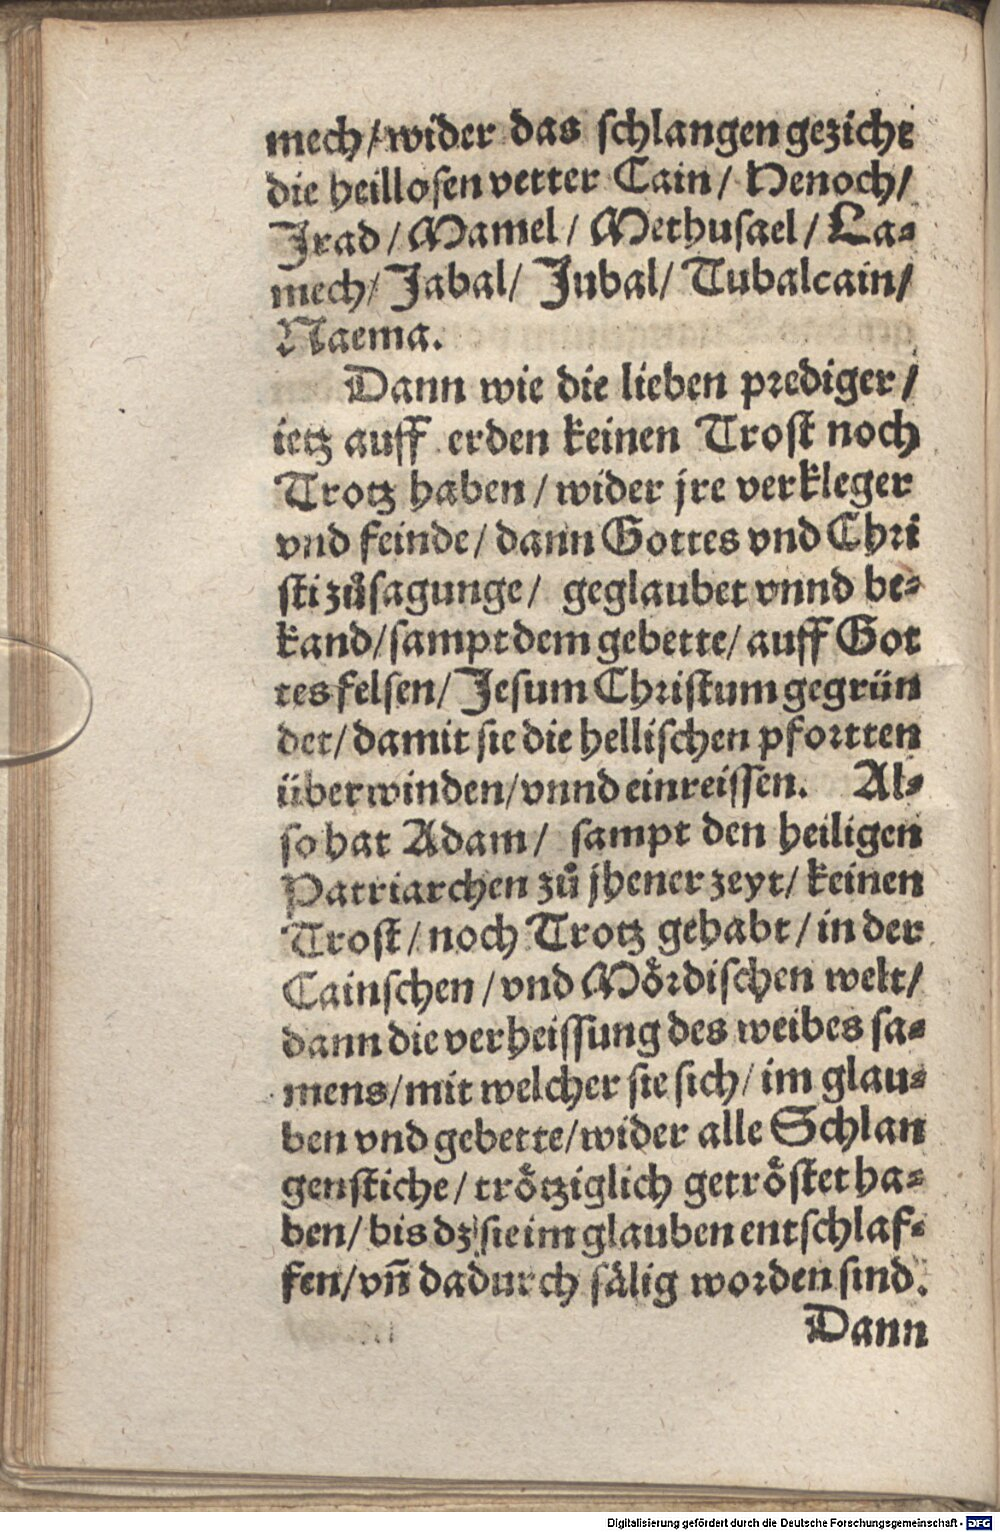 mech/wider das schlangen gezicht
die heillosen vetter Cain/ Henoch/
Irad/ Mamel/ Methusael/ La⸗
mech/ Jabal/ Jubal/ Tubalcain/
Naema.
Dann wie die lieben prediger/
ietz auff erden keinen Trost noch
Trotz haben/ wider jre verkleger
vnd feinde/ dann Gottes vnd Chri
sti zůsagunge/ geglaubet vnnd be⸗
kand/sampt dem gebette/ auff Got
tes felsen/ Jesum Christum gegrün
det/ damit sie die hellischen pfortten
überwinden/vnnd einreissen. Al⸗
so hat Adam/ sampt den heiligen
Patriarchen zů jhener zeyt/ keinen
Trost/ noch Trotz gehabt/ in der
Cainschen/ vnd Mördischen welt/
dann die verheissung des weibes sa⸗
mens/mit welcher sie sich/ im glau⸗
ben vnd gebette/wider alle Schlan
genstiche/ trötziglich getröstet ha⸗
ben/ bis dz sie im glauben entschlaf⸗
fen/ vn̄ dadurch sälig worden sind.
Dann
Digitalisierung gefördert durch die Deutsche Forschungsgemeinschaft - DFG